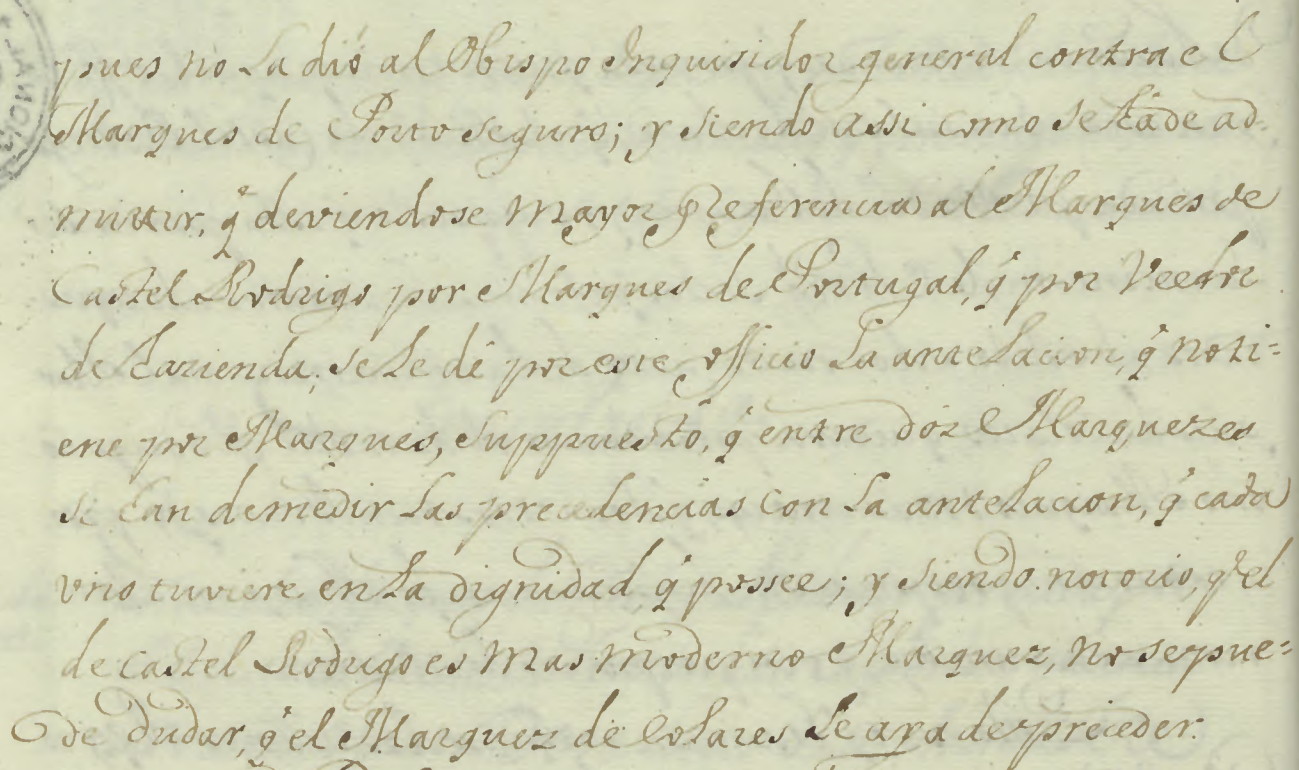 pues no la dió al Obispo Inquisidor general contra el
Marques de Porto seguro; y siendo assi como se ha de ad-
mittir, q̃ deviendose mayor preferencia al Marques de
Castel Rodrigo por Marques de Portugal, q̃ por Veedor
de hazienda, se le dè por este officio la antelacion, q̃ no ti=
ene por Marques, suppuesto, q̃ entre dos Marquezes
se han de medir las precedencias con la antelacion, q̃ cada
uno tuviere en la dignidad q̃ possee; y siendo notorio, q̃ el
de Castel Rodrigo es mas moderno Marquez, no se pue=
de dudar, q̃ el Marquez de Colares le aya de preceder.